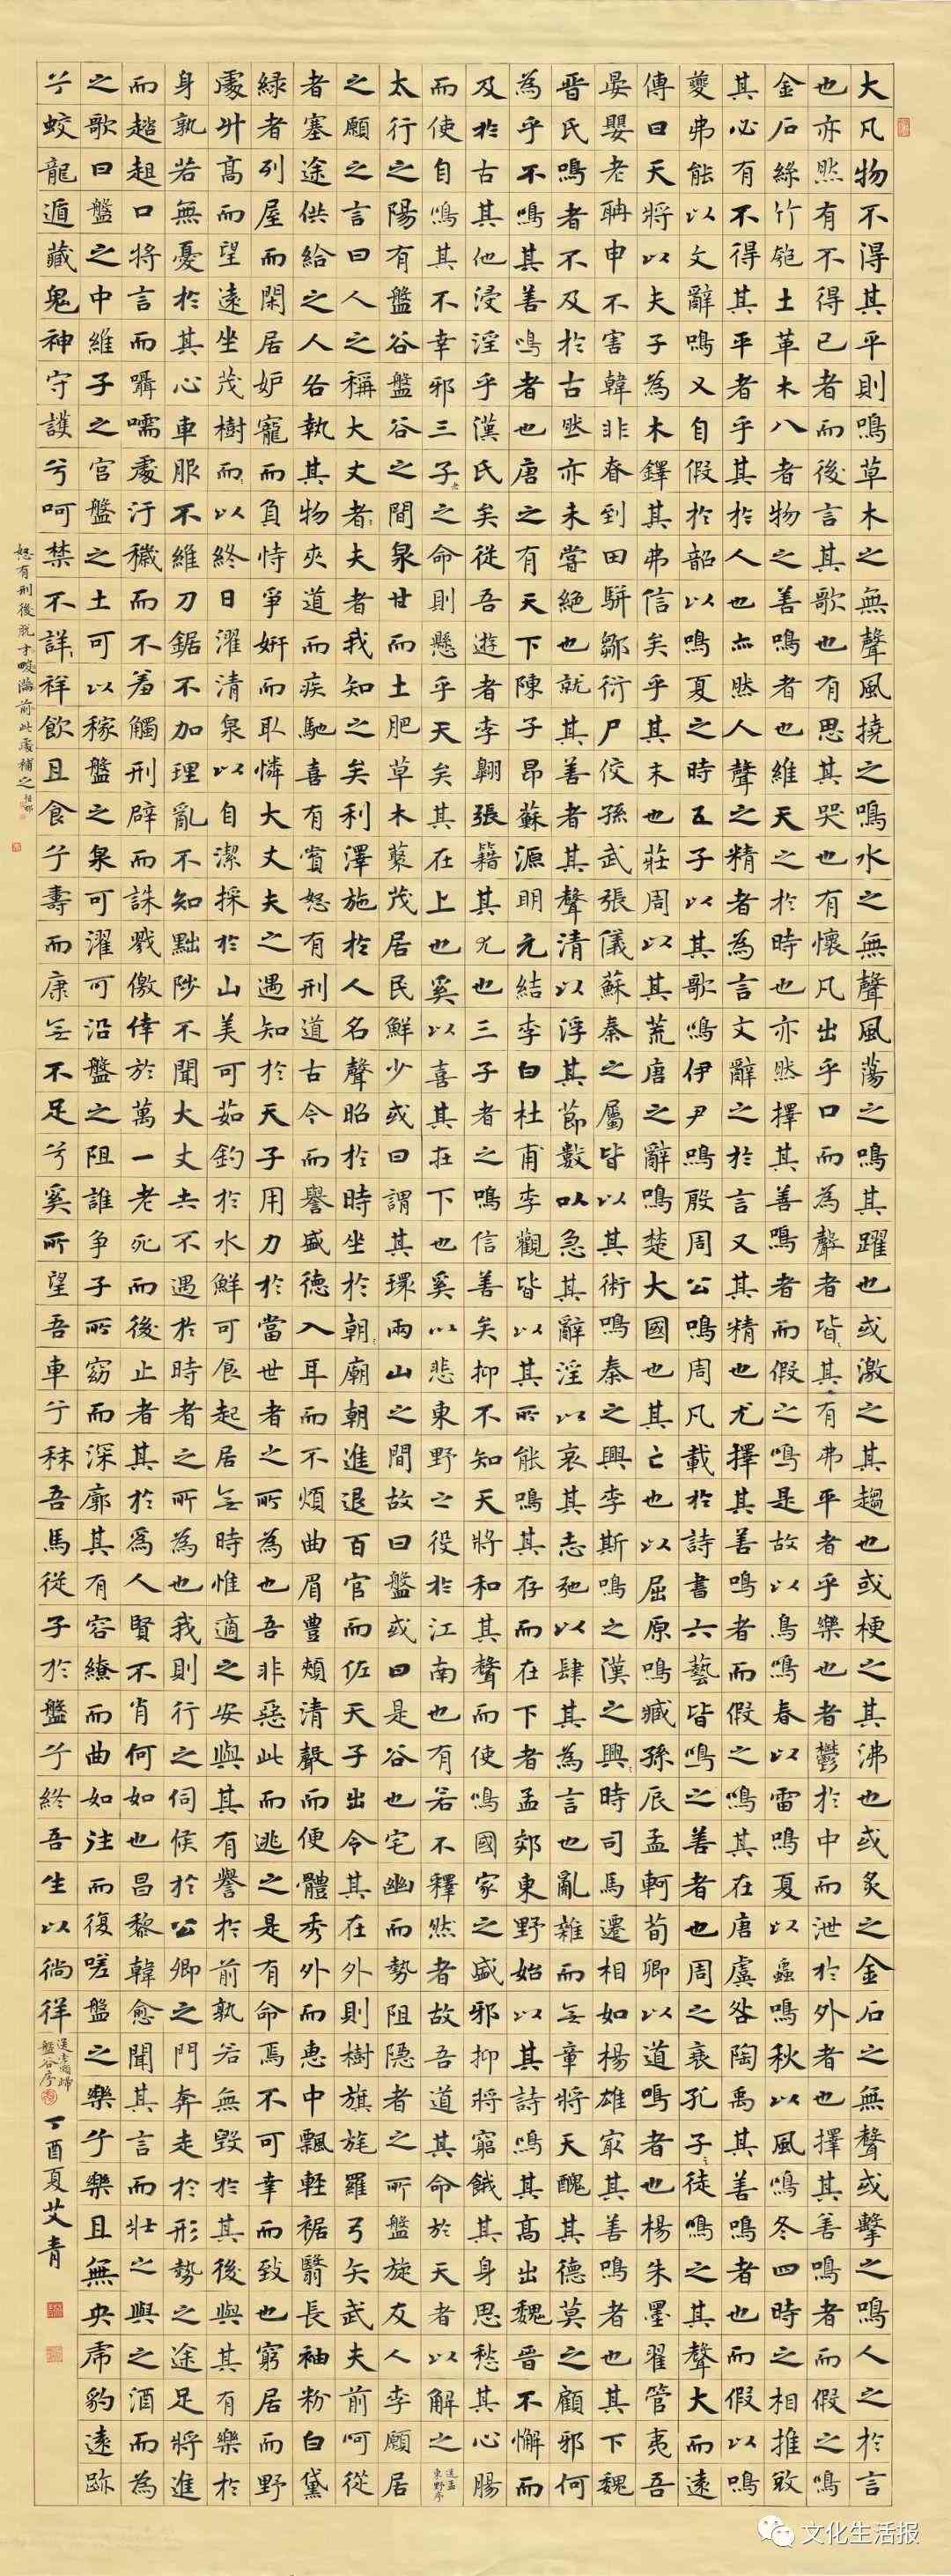 大凡物不得其平則鳴草木之無聲風撓之鳴水之無聲風蕩之鳴其躍也或激之其趨也或梗之其沸也或炙之金石之無聲或擊之鳴人之於言
也亦然有不得已者而後言其歌也有思其哭也有懷凡出乎口而為聲者皆其有弗平者乎樂也者鬱於中而泄於外者也擇其善鳴者而假之鳴
金石絲竹匏土革木八者物之善鳴者也維天之於時也亦然擇其善鳴者而假之鳴是故以鳥鳴春以雷鳴夏以蟲鳴秋以風鳴冬四時之相推敚
其必有不得其平者乎其於人也亦然人聲之精者為言文辭之於言又其精也尤擇其善鳴者而假之鳴其在唐虞咎陶禹其善鳴者也而假以鳴
夔弗能以文辭鳴又自假於韶以鳴夏之時五子以其歌鳴伊尹鳴殷周公鳴周凡載於詩書六藝皆鳴之善者也周之衰孔子之徒鳴之其聲大而遠
傳曰天將以夫子為木鐸其弗信矣乎其末也莊周以其荒唐之辭鳴楚大國也其亡也以屈原鳴臧孫辰孟軻荀卿以道鳴者也楊朱墨翟管夷吾
晏嬰老聃申不害韓非昚到田駢鄒衍尸佼孫武張儀蘇秦之屬皆以其術鳴秦之興李斯鳴之漢之興時司馬遷相如楊雄最其善鳴者也其下魏
晉氏鳴者不及於古然亦未嘗絕也就其善者其聲清以浮其節數以急其辭淫以哀其志弛以肆其為言也亂雜而無章將天醜其德莫之顧邪何
為乎不鳴其善鳴者也唐之有天下陳子昂蘇源明元結李白杜甫李觀皆以其所能鳴其存而在下者孟郊東野始以其詩鳴其高出魏晉不懈而
及於古其他浸淫乎漢氏矣從吾遊者李翱張籍其尤也三子者之鳴信善矣抑不知天將和其聲而使鳴國家之盛邪抑將窮餓其身思愁其心腸
而使自鳴其不幸邪三子之命則懸乎天矣其在上也奚以喜其在下也奚以悲東野之役於江南也有若不釋然者故吾道其命於天者以解之送孟東野序
太行之陽有盤谷盤谷之間泉甘而土肥草木藂茂居民鮮少或曰謂其環兩山之間故曰盤或曰是谷也宅幽而勢阻隱者之所盤旋友人李願居
之願之言曰人之稱大丈者夫者我知之矣利澤施於人名聲昭於時坐於朝廟朝進退百官而佐天子出令其在外則樹旗旄羅弓矢武夫前呵從
者塞途供給之人各執其物夾道而疾馳喜有賞怒有刑道古今而譽盛德入耳而不煩曲眉豐頰清聲而便體秀外而惠中飄輕裾翳長袖粉白黛
綠者列屋而閑居妒寵而負恃爭妍而取憐大丈夫之遇知於天子用力於當世者之所為也吾非惡此而逃之是有命焉不可幸而致也窮居而野
處升高而望遠坐茂樹而以終日濯清泉以自潔採於山美可茹釣於水鮮可食起居無時惟適之安與其有譽於前孰若無毀於其後與其有樂於
身孰若無憂於其心車服不維刀鋸不加理亂不知黜陟不聞大丈夫不遇於時者之所為也我則行之伺候於公卿之門奔走於形勢之途足將進
而趑趄口將言而囁嚅處汙穢而不羞觸刑辟而誅戮徼倖於萬一老死而後止者其於為人賢不肖何如也昌黎韓愈聞其言而壯之與之酒而為
之歌曰盤之中維子之宮盤之土可以稼盤之泉可濯可沿盤之阻誰爭子所窈而深廓其有容繚而曲如往而復嗟盤之樂兮樂且無央虎豹遠跡
兮蛟龍遁藏鬼神守護兮呵禁不詳祥飲且食兮壽而康無不足兮奚所望吾車兮秣吾馬從子於盤兮終吾生以徜徉送李願歸盤谷序丁酉夏艾青
怒有刑後就才畯滿前此處補之
文化生活报